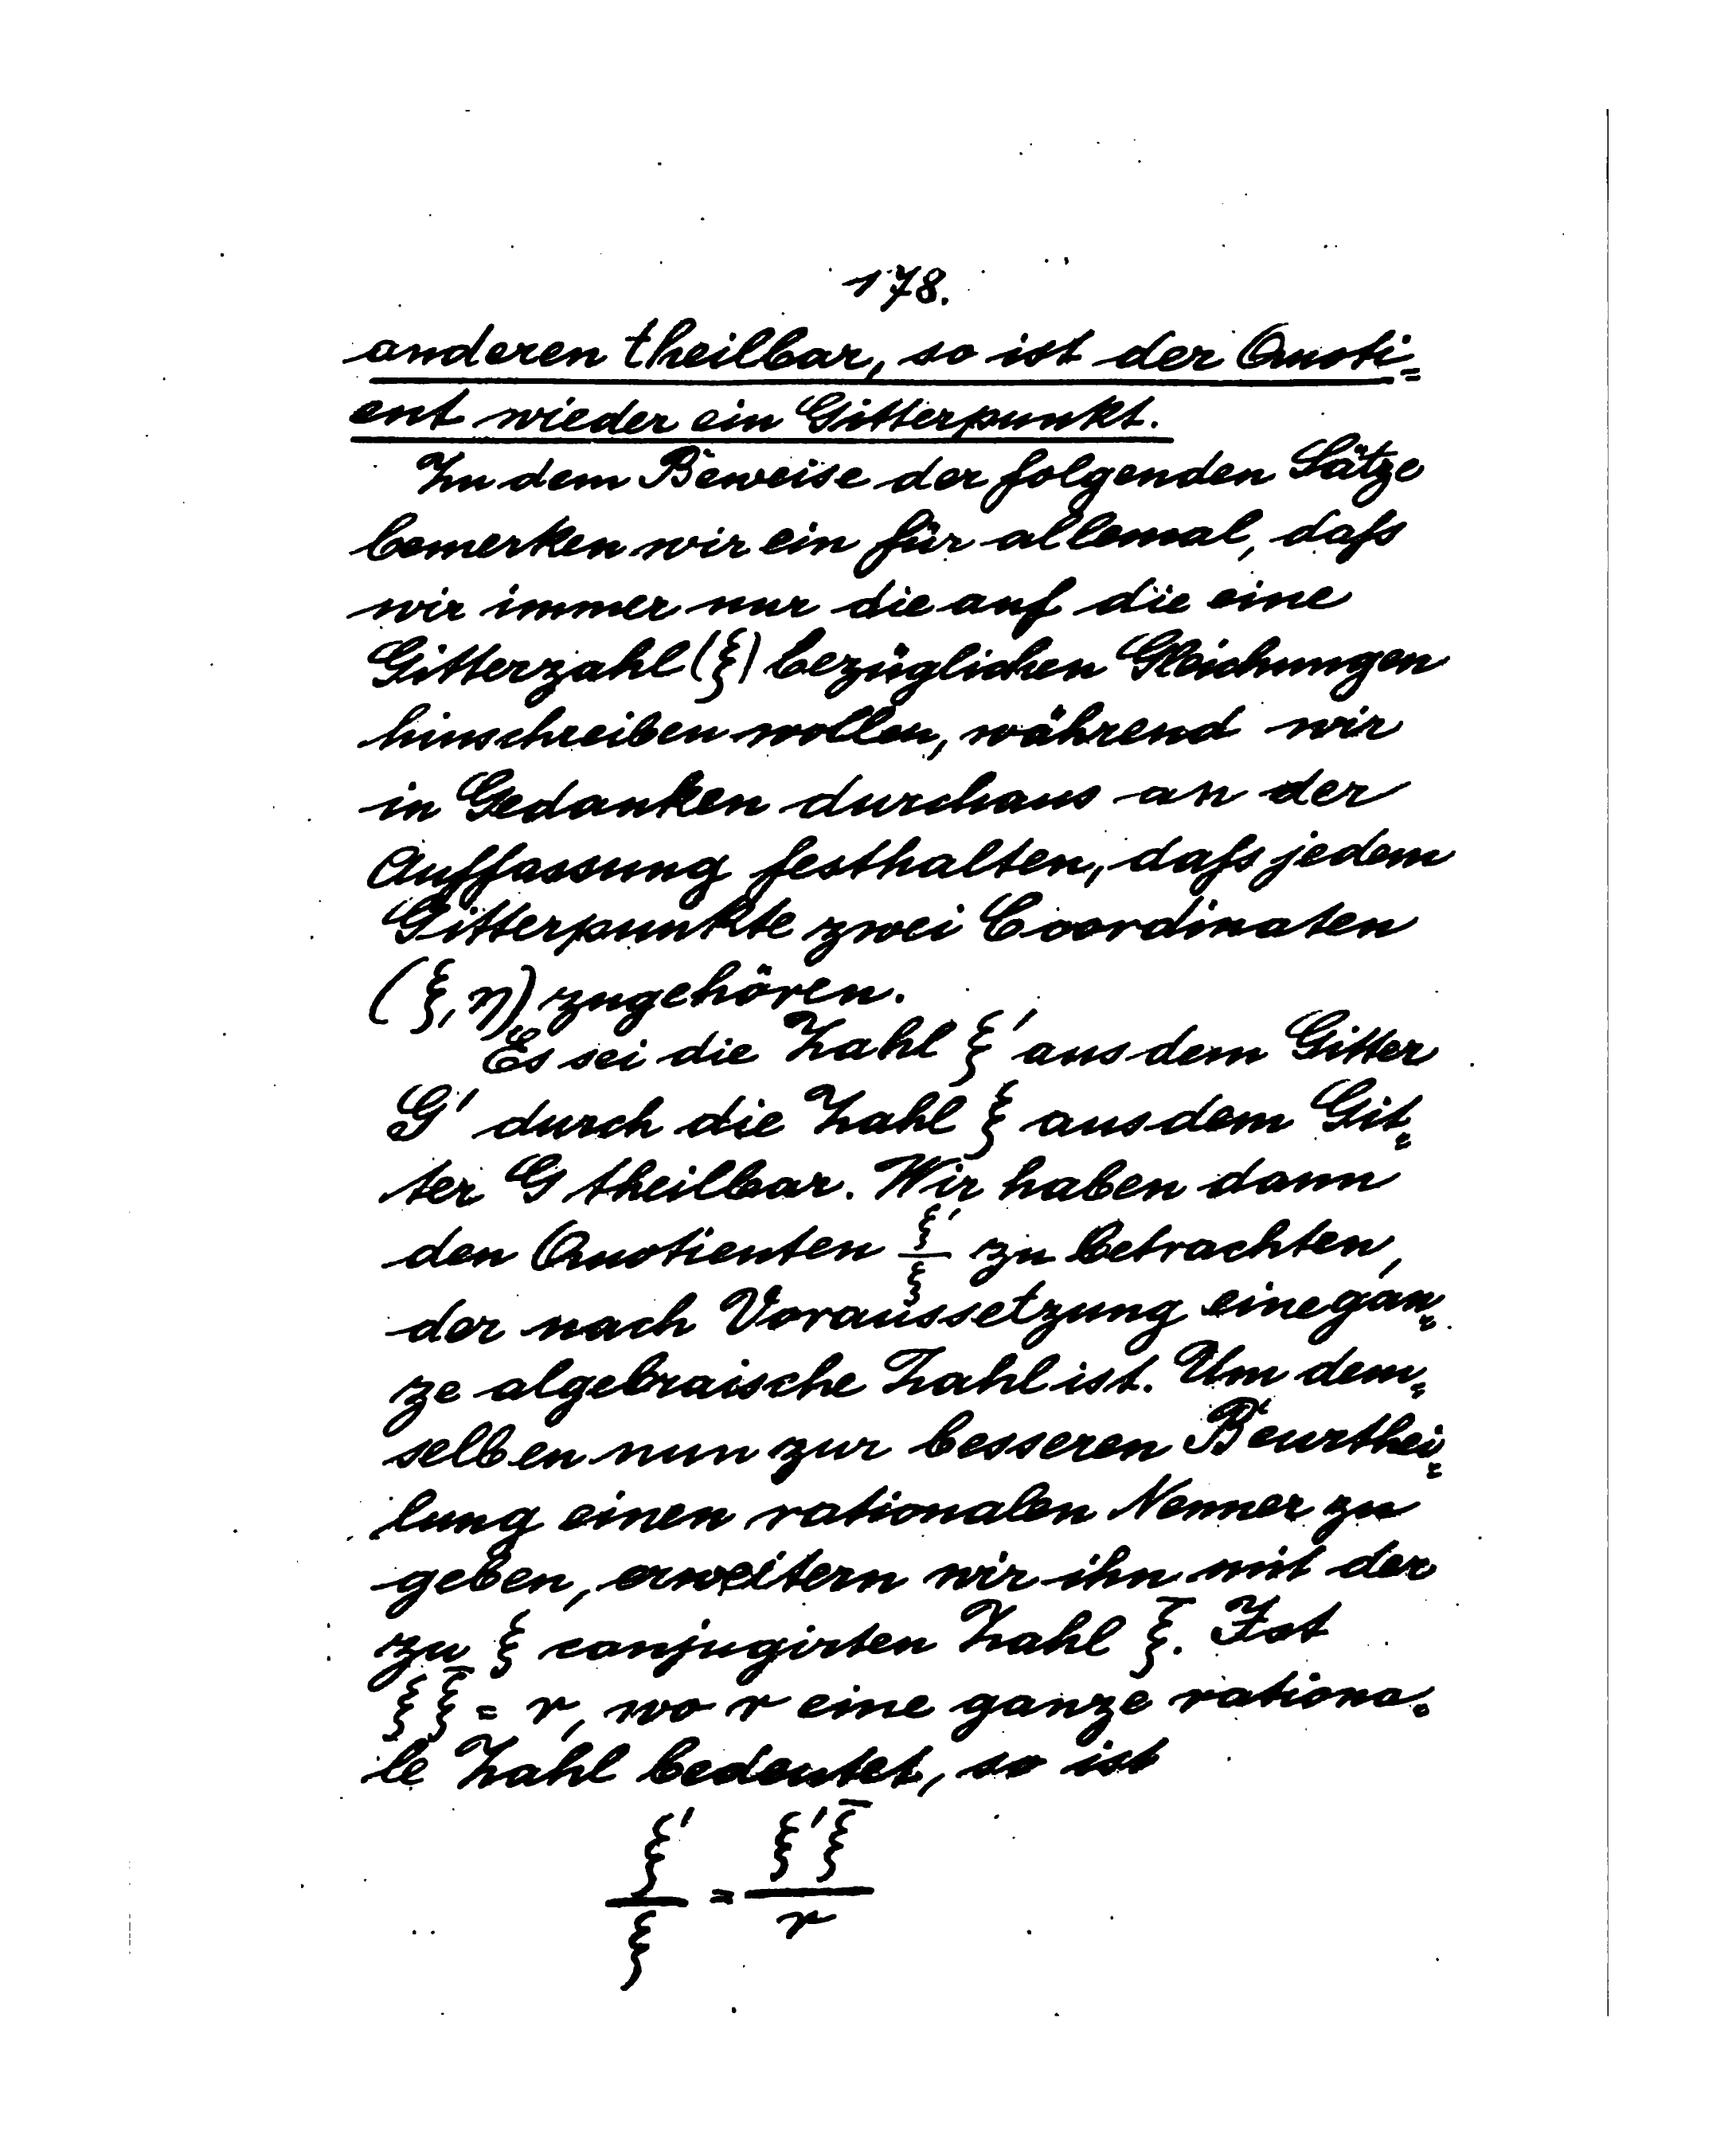 178.
anderen theilbar, so ist der Quoti=
ent wieder ein Gitterpunkt.
In dem Beweise der folgenden Sätze
bemerken wir ein für allemal, daſs
wir immer nur die auf die eine
Gitterzahl (ξ) bezüglichen Gleichungen
hinschreiben wollen, während wir
in Gedanken durchaus an der
Auffassung festhalten, daſs jedem
Gitterpunkte zwei Coordinaten
(ξ, η) zugehören.
Es sei die Zahl ξ' aus dem Gitter
G' durch die Zahl ξ aus dem Git=
ter G theilbar. Wir haben dann
den Quotienten ξ'/ξ zu betrachten,
der nach Voraussetzung eine gan=
ze algebraische Zahl ist. Um dem=
selben nun zur besseren Beurthei=
lung einen rationalen Nenner zu
geben, erweitern wir ihn mit der
zu ξ conjugirten Zahl ξ̄. Ist
ξ ξ̄ = r, wo r eine ganze rationa=
le Zahl bedeutet, so ist
ξ'/ξ = ξ'ξ̄/r